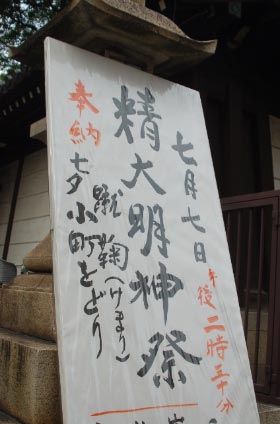 七月七日 午後二時三十分
精大明神祭
奉納
蹴鞠(けまり)
七夕小町をどり